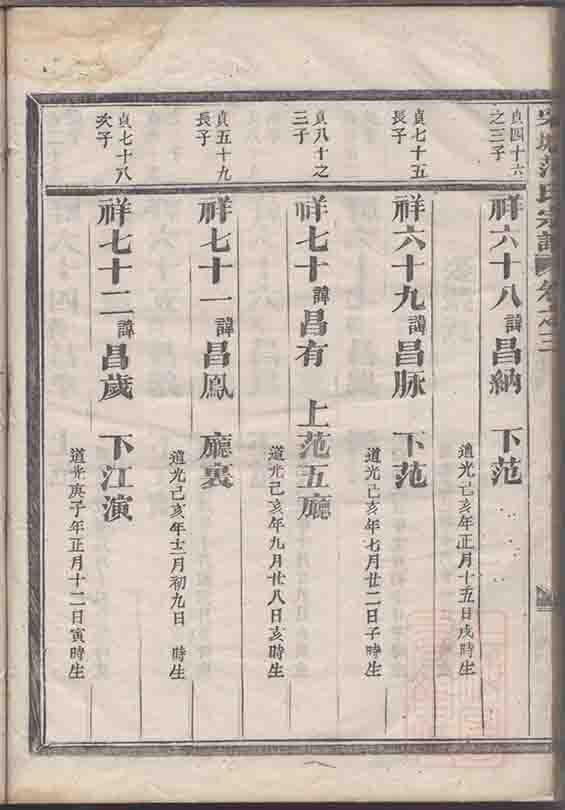 范氏宗譜 卷之三
貞四十六
之三子
祥六十八 諱昌納 下范
道光己亥年正月十五日戌時生
貞七十五
長子
祥六十九 諱昌脉 下范
道光己亥年七月廿二日子時生
貞八十之
三子
祥七十 諱昌有 上范五廳
道光己亥年九月廿八日亥時生
貞五十九
長子
祥七十一 諱昌鳳 廳裏
道光己亥年十二月初九日 時生
貞七十八
次子
祥七十二 諱昌歲 下江演
道光庚子年正月十二日寅時生